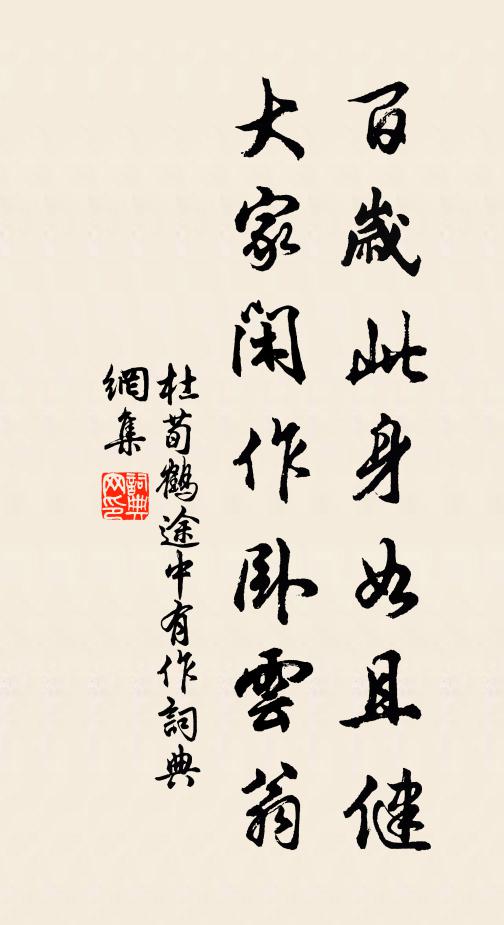 百歲此身如且健
大家閑作卧雲翁
杜荀鶴途中有作詞典
網集
詞典
网印